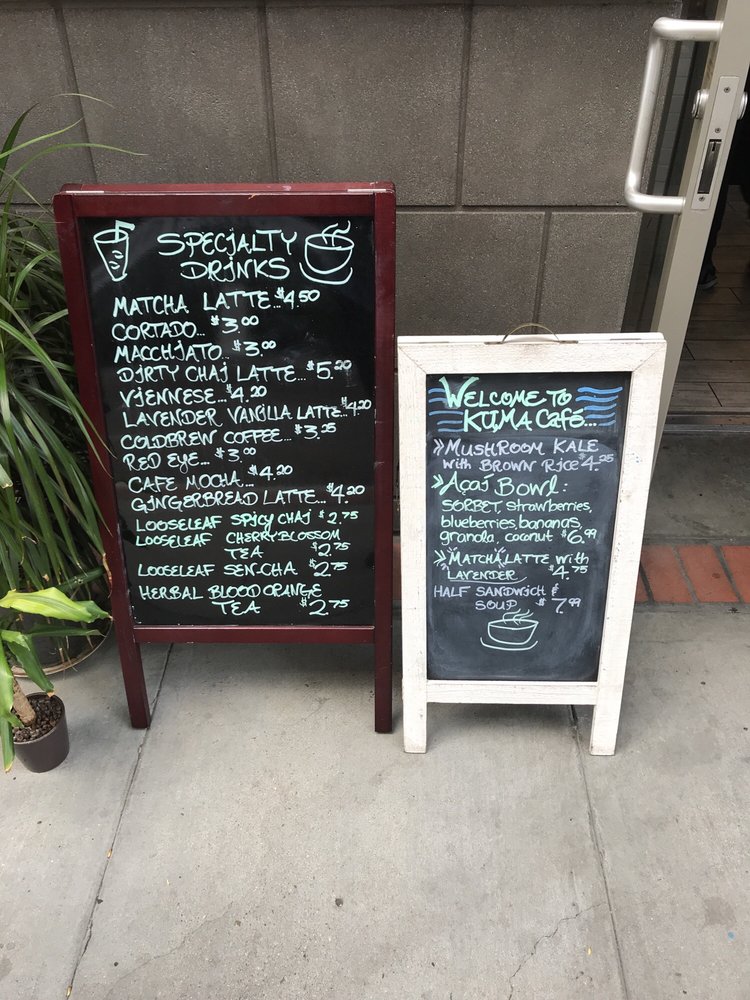 SPECIALTY
DRINKS
MATCHA LATTE...$4.50
CORTADO...$3.00
MACCHIATO..$3.00
DIRTY CHAI LATTE...$5.20
VIENNESE...$4.20
LAVENDER VANILLA LATTE..$4.20
COLDBREW COFFEE...$3.25
RED EYE...$3.00
CAFE MOCHA...$4.20
GINGERBREAD LATTE...$4.20
LOOSELEAF SPICY CHAI $2.75
LOOSELEAF CHERRYBLOSSOM
TEA $2.75
LOOSELEAF SEN-CHA $2.75
HERBAL BLOOD ORANGE
TEA $2.75
WELCOME TO
KUMA Café...
»MUSHROOM KALE
with BROWN RICE $4.25
»Açaí Bowl:
SORBET, strawberries,
blueberries, bananas,
granola, coconut $6.99
»MATCHA LATTE with
LAVENDER $4.75
HALF SANDWICH &
SOUP $7.99